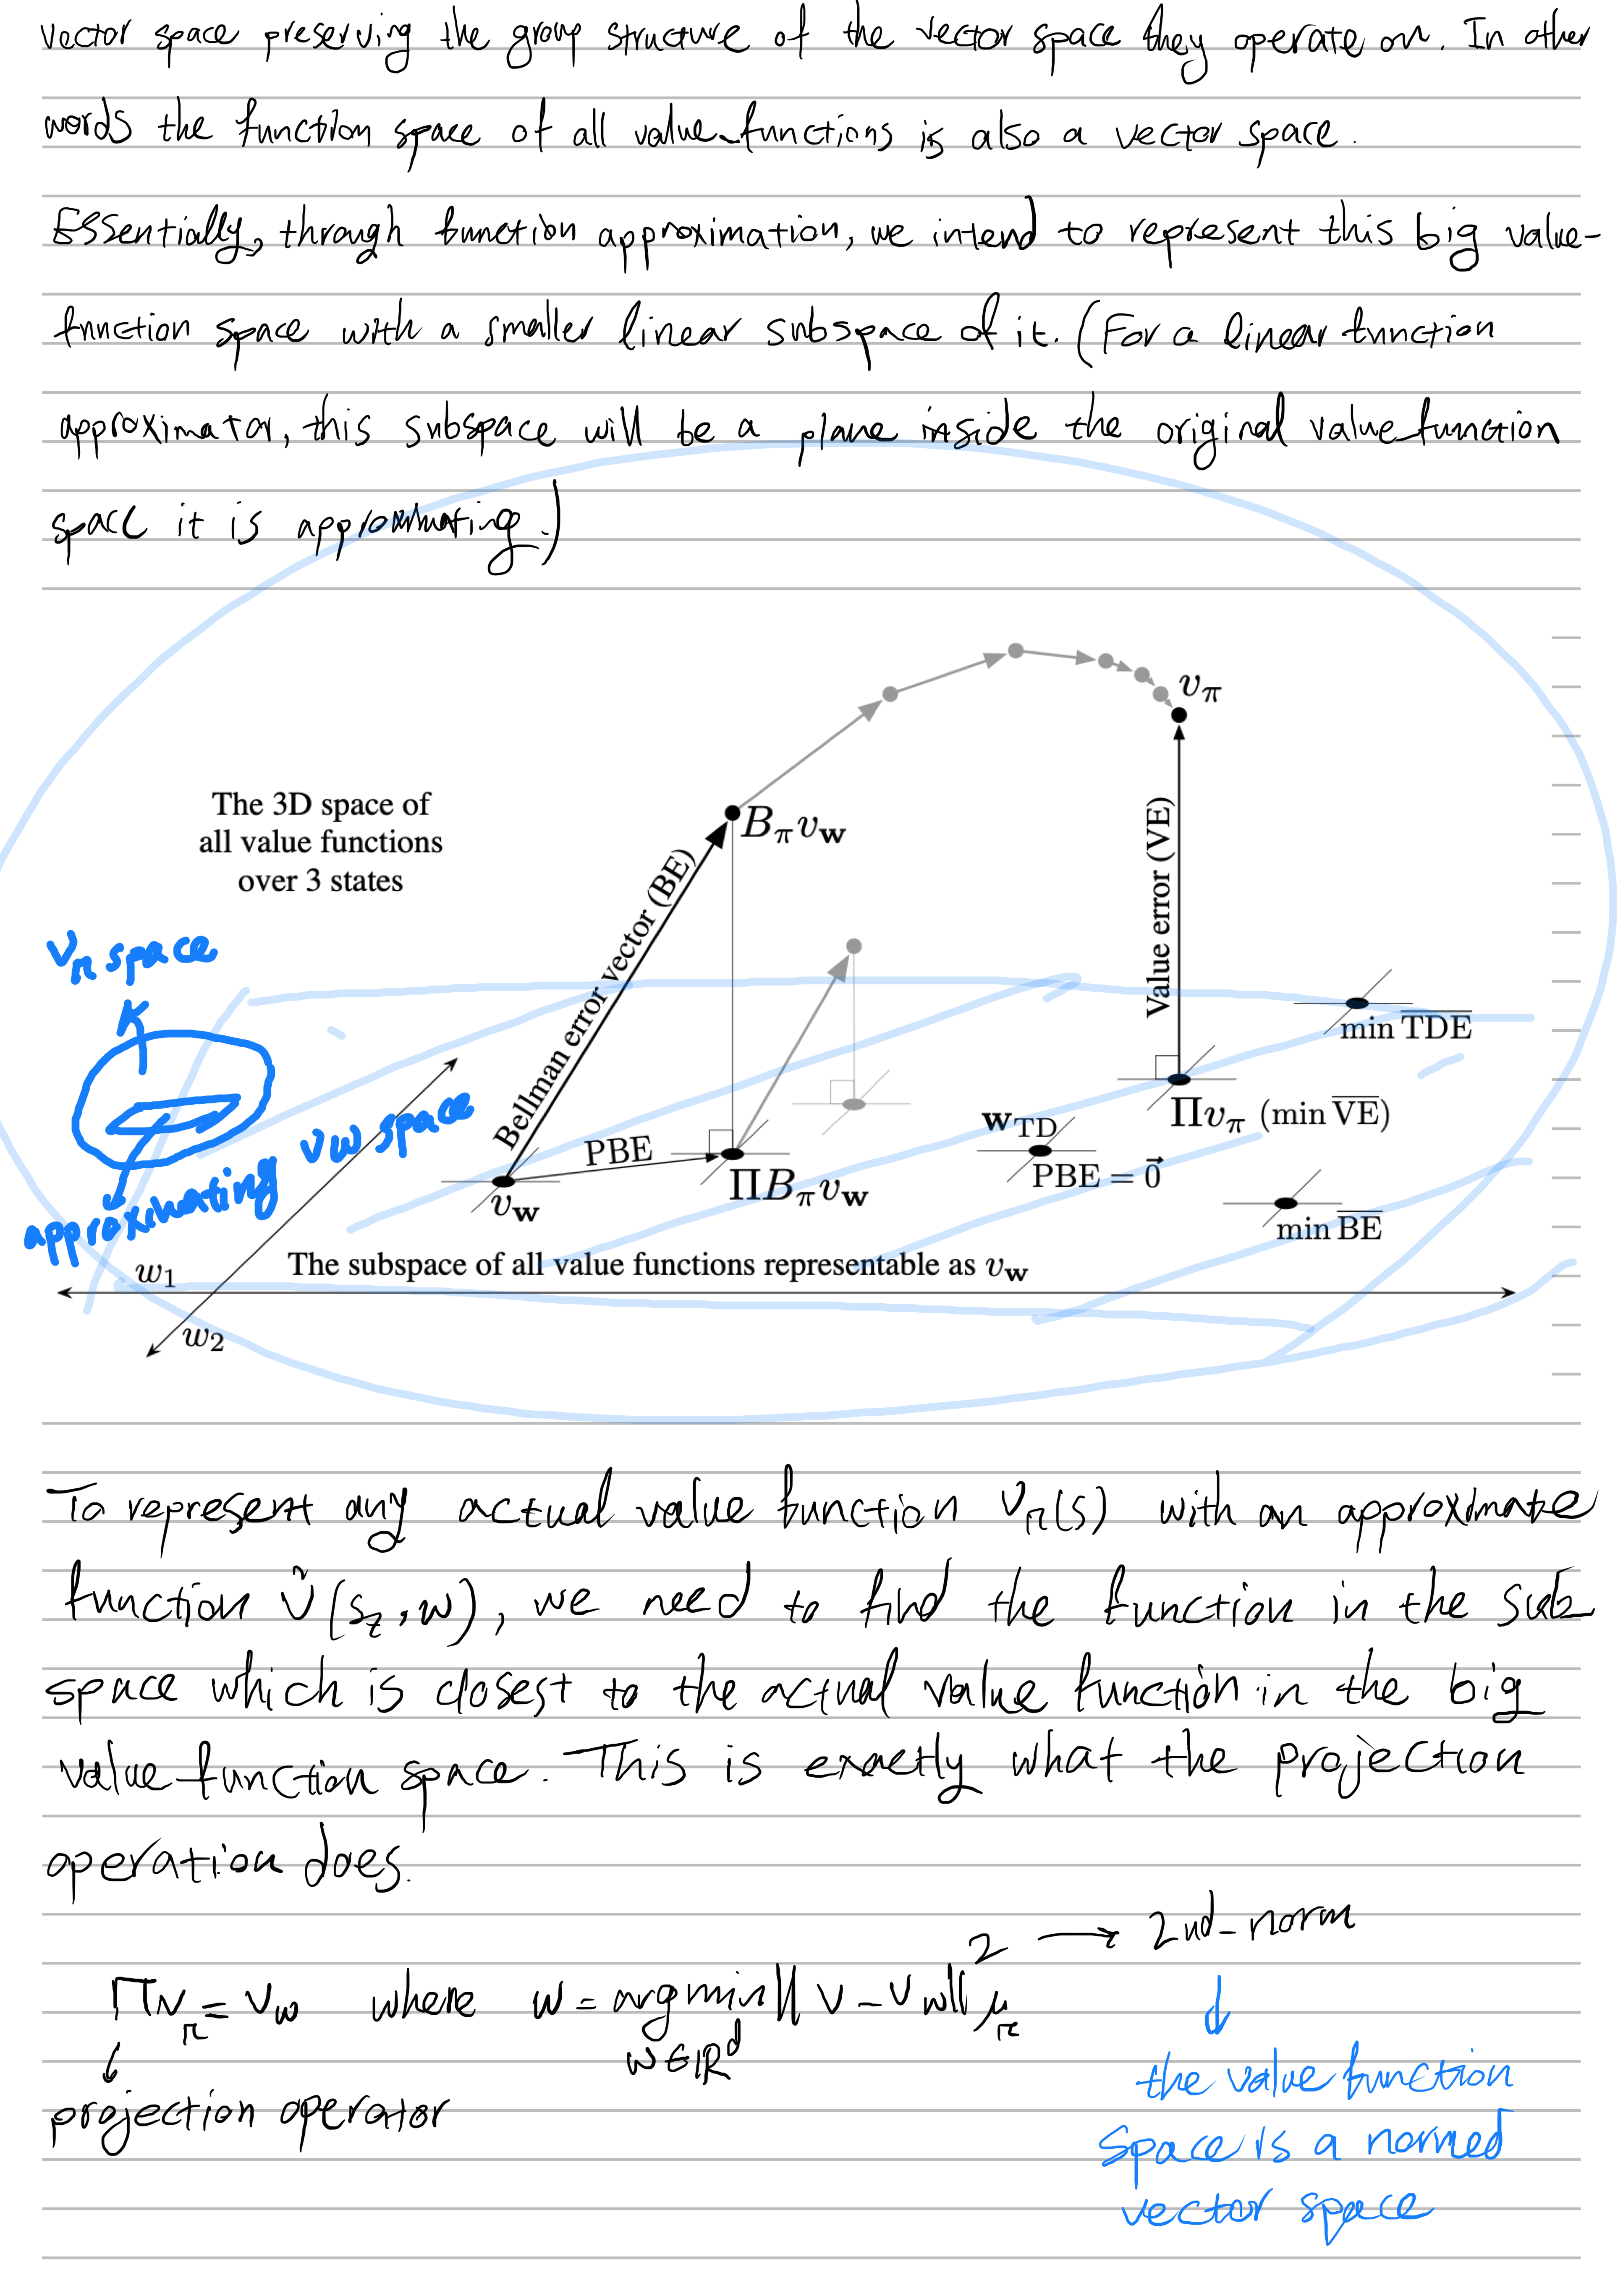 vector space preserving the group structure of the vector space they operate on. In other
words the function space of all value-functions is also a vector space.
Essentially, through function approximation, we intend to represent this big value-
function space with a smaller linear subspace of it. (For a linear function
approximator, this subspace will be a plane inside the original value-function
space it is approximating.)
v_π
The 3D space of
all value functions
over 3 states
B_π v_w
Bellman error vector (BE)
Value error (VE)
v_π space
min \overline{TDE}
approximating v_w space
PBE
v_w
ΠB_π v_w
w_TD
PBE = \vec{0}
Πv_π (min \overline{VE})
min \overline{BE}
The subspace of all value functions representable as v_w
w_1
w_2
To represent any actual value function v_π(s) with an approximate
function v̂(s_t, w), we need to find the function in the sub
space which is closest to the actual value function in the big
value-function space. This is exactly what the projection
operation does.
Πv_π = v_w where w = argmin_{w∈ℝ^d} ||v - v_w||^2_{μ_π} → 2nd-norm
projection operator
the value function
space is a normed
vector space